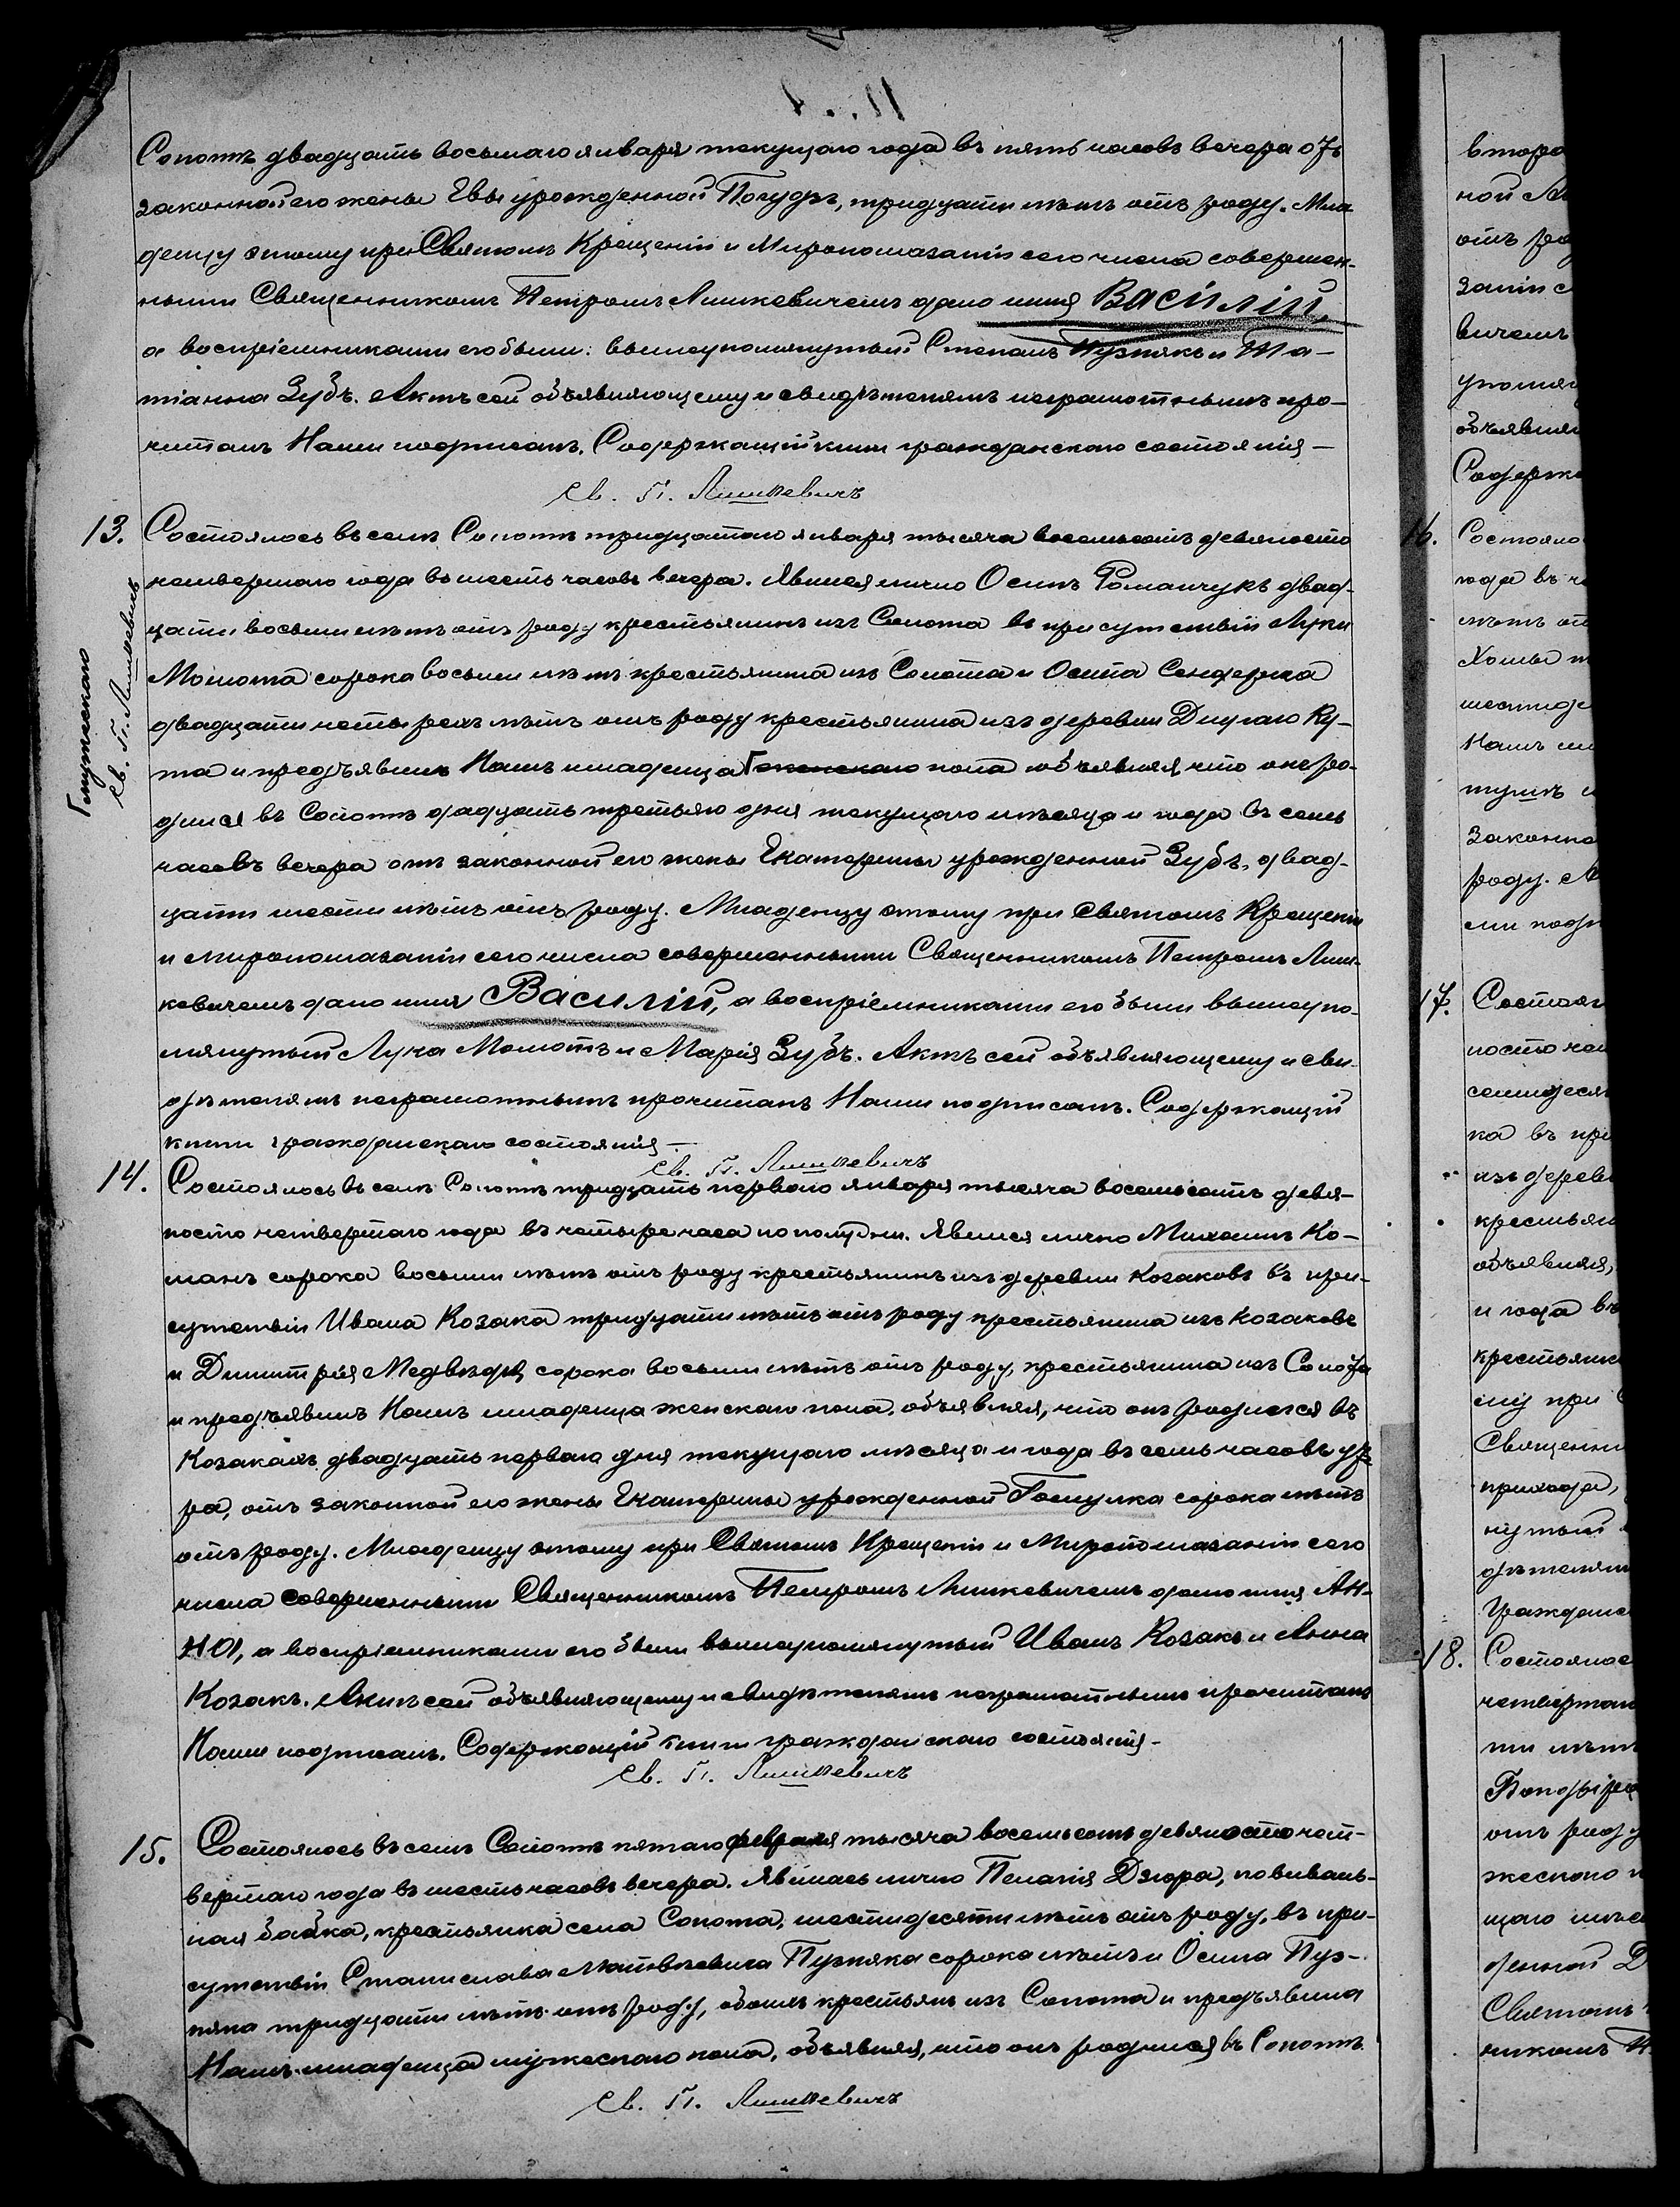 Сополь двадцать восьмаго января текущаго года въ пять часовъ вечера отъ
законной его жены Евы урожденной Погудзъ, тридцати лѣтъ отъ роду. Мла
денцу этому при Святомъ Крещеніи и Миропомазаніи сего числа совершен-
ными Священникомъ Петромъ Лишкевичемъ дано имя Василій,
а воспріемниками его были: вышеупомянутый Степанъ Пузнякъ и Та-
тіанна Зубъ. Актъ сей объявляющему и свидѣтелямъ неграмотнымъ про-
читанъ Нами подписанъ. Содержащій книги гражданскаго состоянія —
Св. П. Лишкевичъ
13. Состоялось въ селѣ Сополѣ тридцатаго января тысяча восемьсотъ девяносто
четвертаго года въ шесть часовъ вечера. Явился лично Осипъ Романчукъ двад-
цати восьми лѣтъ отъ роду крестьянинъ изъ Сопота въ присутствіи Луки
Момота сорока восьми лѣтъ крестьянина изъ Сопота и Осипа Сендерка
двадцати четырехъ лѣтъ отъ роду крестьянина изъ деревни Длугаго Ку-
та и предъявилъ Намъ младенца Г женскаго пола объявляя что онъ ро-
дился въ Сопотѣ двадцать третьяго дня текущаго мѣсяца и года въ семь
часовъ вечера отъ законной его жены Екатерины урожденной Зубъ, двад-
цати шести лѣтъ отъ роду. Младенцу этому при Святомъ Крещеніи
и миропомазаніи сего числа совершенными Священникомъ Петромъ Лиш-
кевичемъ дано имя Василій, а воспріемниками его были вышеупо-
мянутый Лука Момотъ и Марія Зубъ. Актъ сей объявляющему и сви-
дѣтелямъ неграмотнымъ прочитанъ Нами подписанъ. Содержащій
книги гражданскаго состоянія —
Св. П. Лишкевичъ
Г мужескаго
Св. П. Лишкевичъ
14. Состоялось въ селѣ Сопотѣ тридцать перваго января тысяча восемьсотъ девя-
носто четвертаго года въ четыре часа пополудни. Явился лично Михаилъ Ко-
манъ сорока восьми лѣтъ отъ роду крестьянинъ изъ деревни Козаковъ въ при-
сутствіи Ивана Козака тридцати лѣтъ отъ роду крестьянина изъ Козаковъ
и Димитрія Медвѣдя сорока восьми лѣтъ отъ роду, крестьянина изъ Сопота
и предъявилъ Намъ младенца женскаго пола, объявляя, что онъ родился въ
Козакахъ двадцать перваго дня текущаго мѣсяца и года въ семь часовъ ут-
ра, отъ законной его жены Екатерины урожденной сорока лѣтъ
отъ роду. Младенцу этому при Святомъ Крещеніи и Миропомазаніи сего
числа совершенными Священникомъ Петромъ Лишкевичемъ дано имя Ан-
на, а воспріемниками его были вышеупомянутый Иванъ Козакъ и Анна
Козакъ. Актъ сей объявляющему и свидѣтелямъ неграмотнымъ прочитанъ
Нами подписанъ. Содержащій книги гражданскаго состоянія —
Св. П. Лишкевичъ
15. Состоялось въ селѣ Сопотѣ пятаго февраля тысяча восемьсотъ девяносто чет-
вертаго года въ шесть часовъ вечера. Явилась лично Пелагія Дзюра, повиваль-
ная бабка, крестьянка села Сопота, шестидесяти лѣтъ отъ роду, въ при-
сутствіи Станислава Матвѣевича Пузняка сорока лѣтъ и Осипа Пуз-
няка тридцати лѣтъ отъ роду, обоихъ крестьянъ изъ Сопота и предъявила
Намъ младенца мужескаго пола, объявляя, что онъ родился въ Сопотѣ
Св. П. Лишкевичъ
второ
ной
отъ ро
запіи с
вичемъ
упомян
объявля
Содержа
16. Состояло
года въ
лѣтъ от
Хомы
шестиде
Намъ
законно
роду.
ми подп
17. Состоял
носто чет
семидеся
ка въ при
изъ дерев
крестьян
объявляя,
и года въ
крестьянк
му при
Священни
прихода,
нутый
дѣтелям
граждан
18. Состоялос
четвертаг
ти лѣтъ
отъ роду
жескаго п
щаго мѣс
денной Д
Святомъ
никомъ П